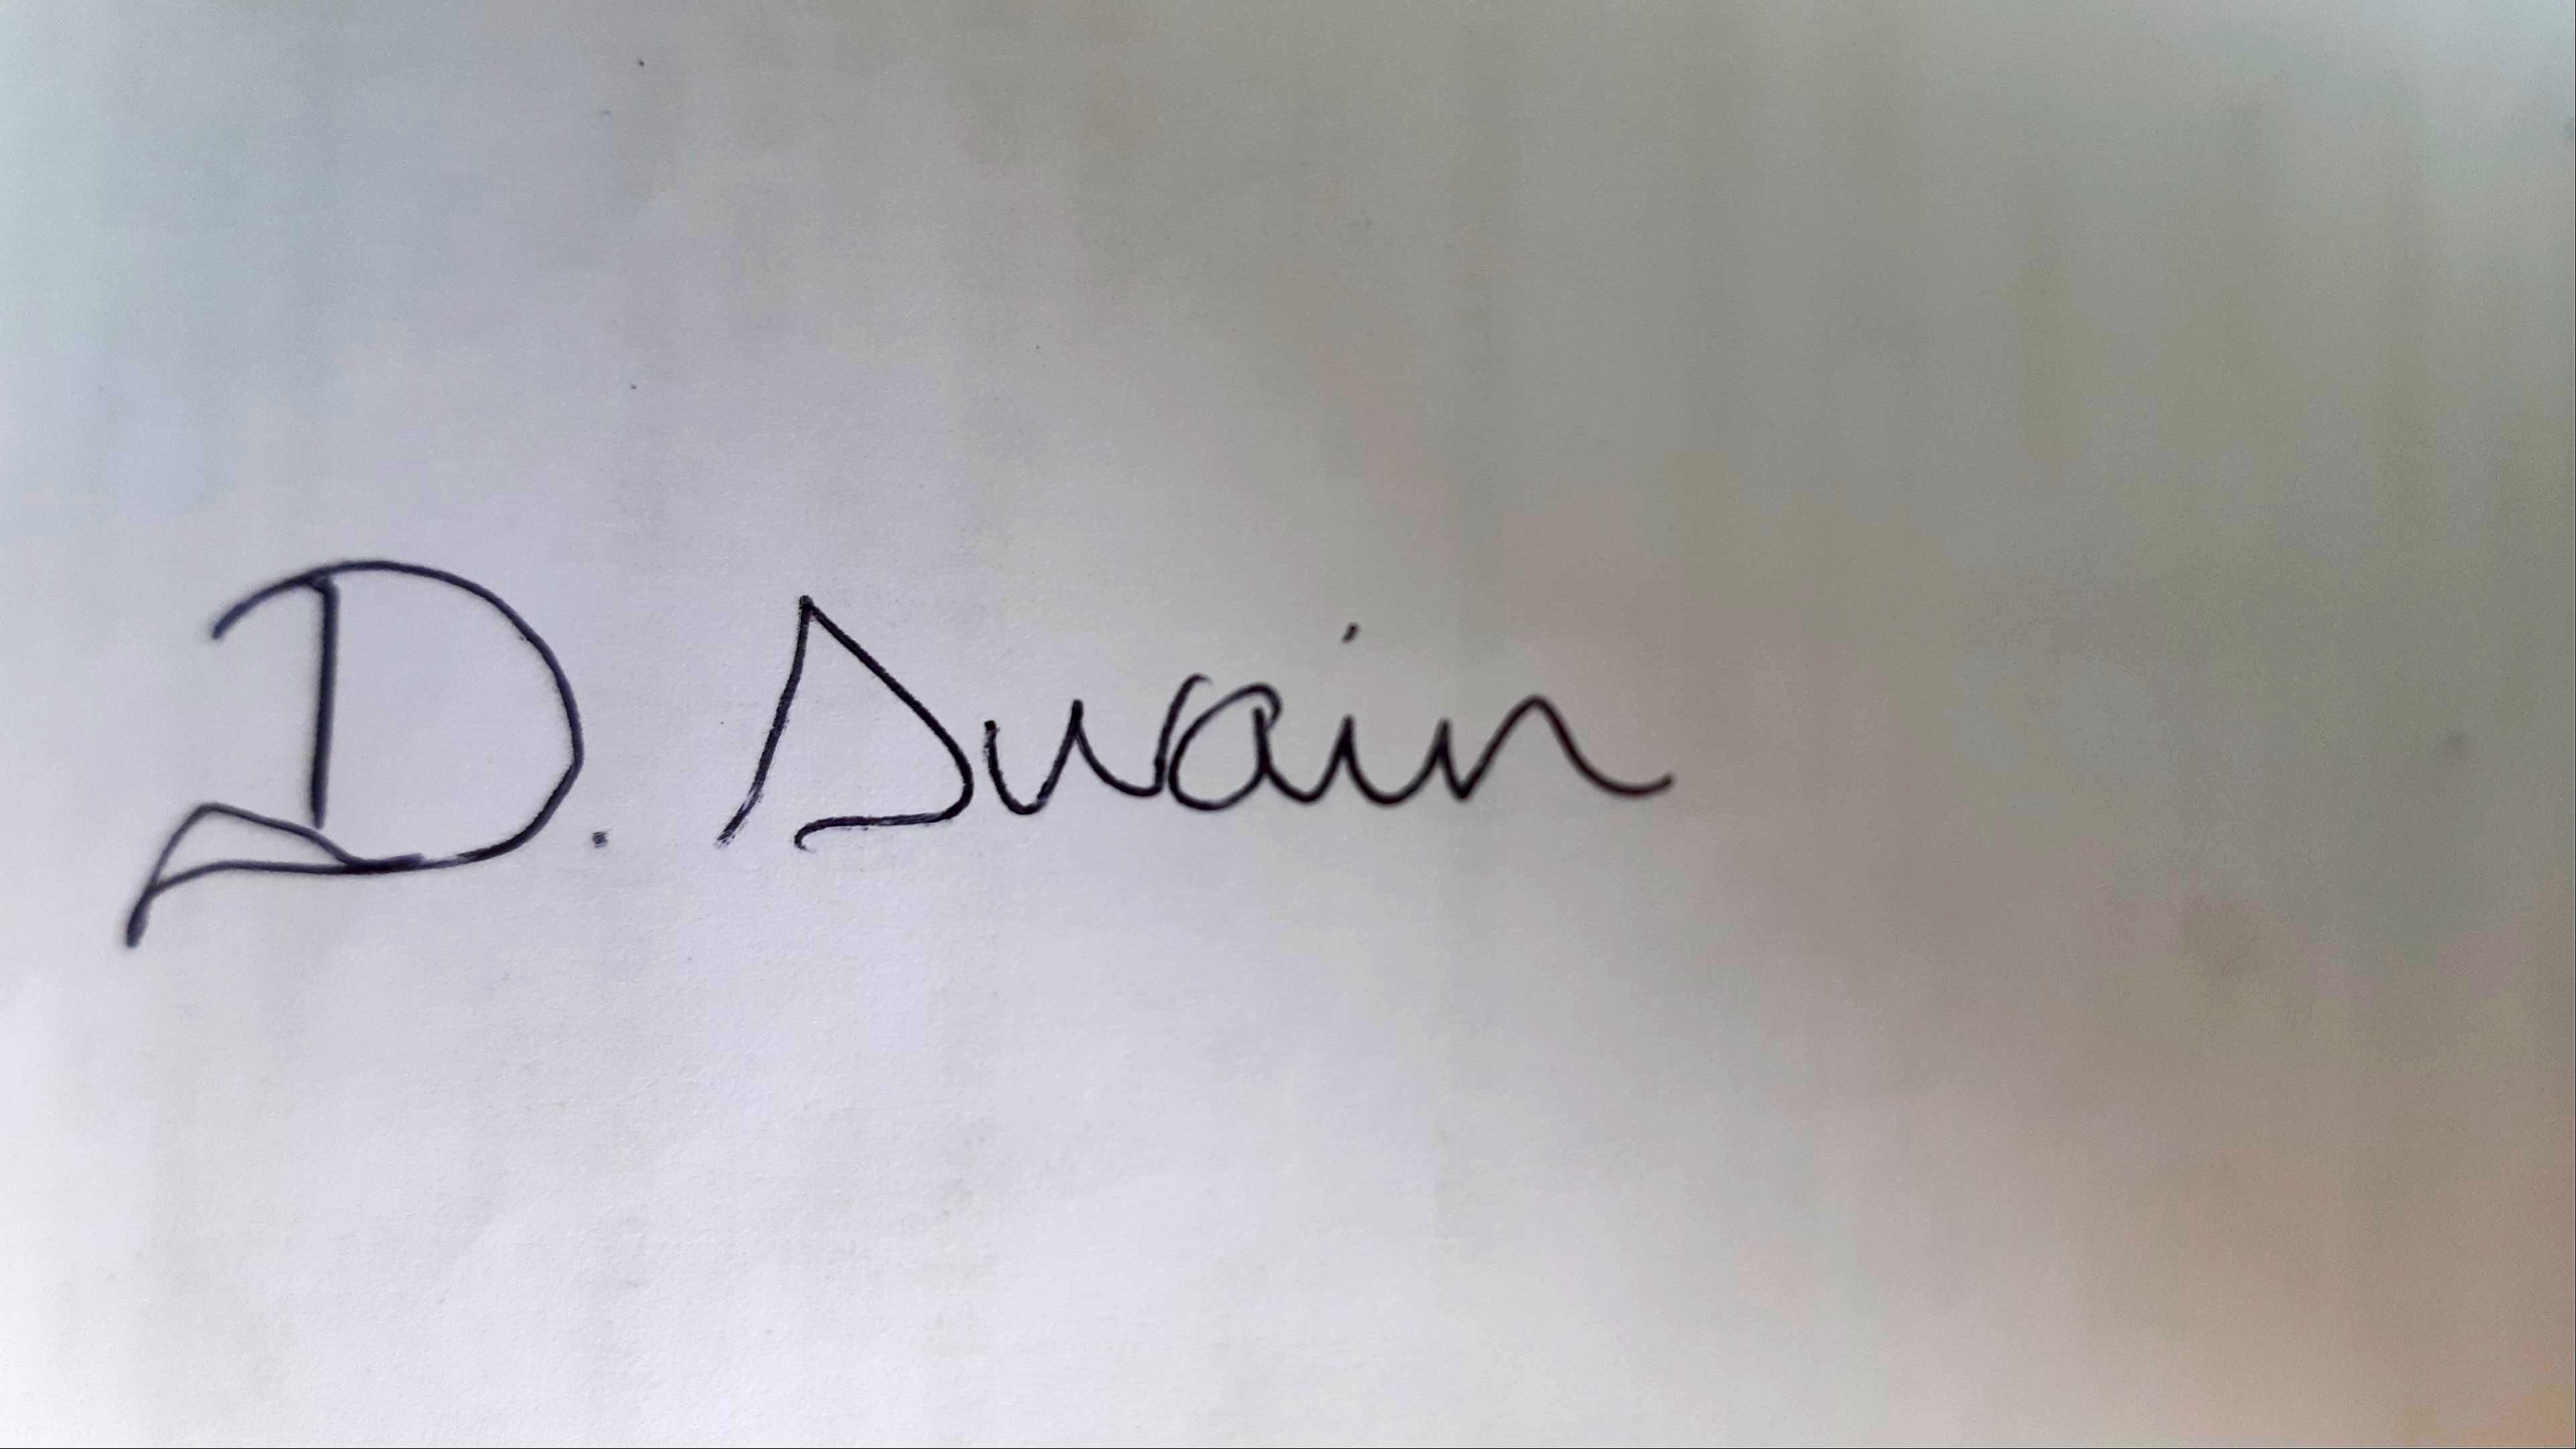 D. Swain